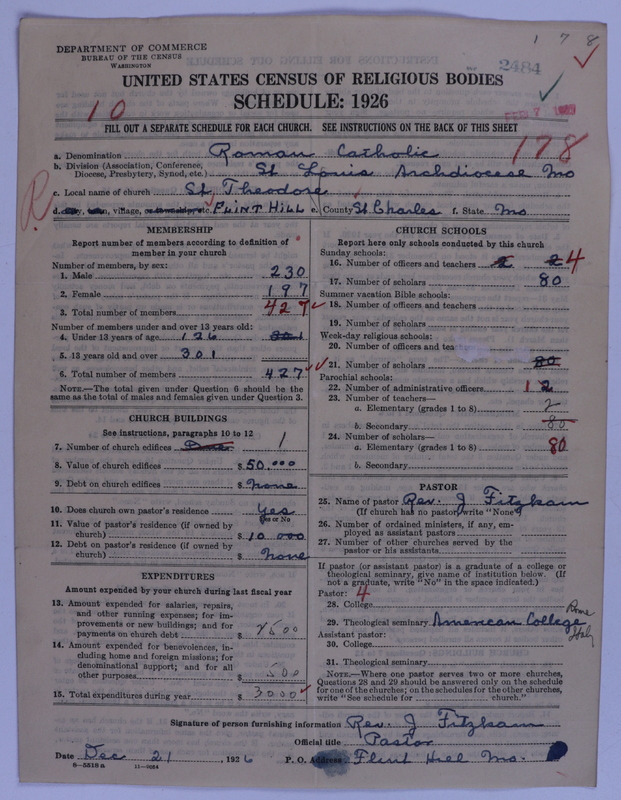 1 7 8
DEPARTMENT OF COMMERCE
BUREAU OF THE CENSUS
WASHINGTON
2484
UNITED STATES CENSUS OF RELIGIOUS BODIES
SCHEDULE: 1926
10
FILL OUT A SEPARATE SCHEDULE FOR EACH CHURCH. SEE INSTRUCTIONS ON THE BACK OF THIS SHEET
178
a. Denomination Roman Catholic
b. Division (Association, Conference, Diocese, Presbytery, Synod, etc.) St Louis Archdiocese Mo
c. Local name of church St. Theodore
d. city, town, village, or township, etc. FLINT HILL e. County St Charles f. State Mo
R
MEMBERSHIP
Report number of members according to definition of
member in your church
Number of members, by sex:
1. Male 230
2. Female 197
3. Total number of members 427
Number of members under and over 13 years old:
4. Under 13 years of age 126
5. 13 years old and over 301
6. Total number of members 427
NOTE.—The total given under Question 6 should be the
same as the total of males and females given under Question 3.
CHURCH BUILDINGS
See instructions, paragraphs 10 to 12
7. Number of church edifices 1
8. Value of church edifices $ 50.000
9. Debt on church edifices $ none
10. Does church own pastor's residence? Yes
Yes or No
11. Value of pastor's residence (if owned by
church) $ 10 000
12. Debt on pastor's residence (if owned by
church) $ none
EXPENDITURES
Amount expended by your church during last fiscal year
13. Amount expended for salaries, repairs,
and other running expenses; for im-
provements or new buildings; and for
payments on church debt $ 2500
14. Amount expended for benevolences, in-
cluding home and foreign missions; for
denominational support; and for all
other purposes $ 500
15. Total expenditures during year $ 3000
CHURCH SCHOOLS
Report here only schools conducted by this church
Sunday schools:
16. Number of officers and teachers 2 4
17. Number of scholars 80
Summer vacation Bible schools:
18. Number of officers and teachers
19. Number of scholars
Week-day religious schools:
20. Number of officers and tea
21. Number of scholars 80
Parochial schools:
22. Number of administrative officers 1 2
23. Number of teachers—
a. Elementary (grades 1 to 8) 2
b. Secondary 80
24. Number of scholars—
a. Elementary (grades 1 to 8) 80
b. Secondary
PASTOR
25. Name of pastor Rev. J Fitzkam
(If church has no pastor, write "None")
26. Number of ordained ministers, if any, em-
ployed as assistant pastors
27. Number of other churches served by the
pastor or his assistants
If pastor (or assistant pastor) is a graduate of a college or
theological seminary, give name of institution below. (If
not a graduate, write "No" in the space indicated.)
Pastor: 4
28. College
29. Theological seminary American College Rome Italy
Assistant pastor:
30. College
31. Theological seminary
NOTE.—Where one pastor serves two or more churches,
Questions 28 and 29 should be answered only on the schedule
for one of the churches; on the schedules for the other churches,
write "See schedule for church."
Signature of person furnishing information Rev. J Fitzkam
Official title Pastor
Date Dec 21, 1926 P. O. Address Flint Hill Mo.
6—5518a 11—9054